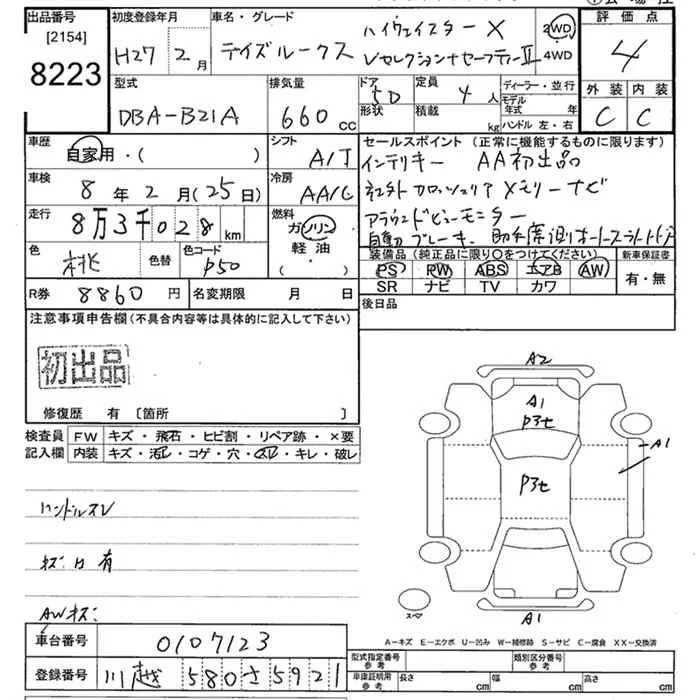 出品番号 初度登録年月 車名・グレード ハイウェイスター X 2WD 評価点
[2154] H27年 2月 デイズルークス Vセレクション+セーフティーII 4WD 4
8223 型式 排気量 ドア 定員 ディーラー・並行 外装 内装
DBA-B21A 660cc 5D 4人 モデル年式 年 C C
形状 積載 kg ハンドル 左・右
車歴 自家用・( ) シフト A/T セールスポイント (正常に機能するものに限ります)
インテリキー AA初出品
車検 8年2月(25日) 冷房 AA/C
ネエ外 カロッツェリア メモリーナビ
走行 8万3千028km 燃料 ガソリン
アラウンドビューモニター
色 桃 色替 色コード P50 軽油 ・( )
自動ブレーキ、助手席側オートスライドドア
装備品 (純正品に限り○をつけてください) 新車保証書
PS PW ABS エアB AW 有・無
SR ナビ TV カワ
R券 8860円 名変期限 月 日
後日品
注意事項申告欄 (不具合内容等は具体的に記入して下さい)
初出品
修復歴 有 [箇所 ]
検査員 FW キズ・飛石・ヒビ割・リペア跡・×要
記入欄 内装 キズ・汚レ・コゲ・穴・スレ・キレ・破レ
A2
A1
P3セ
A1
P3セ
ハンドルスレ
キズ凹有
AWキズ:
スペア
A1
A-キズ E-エクボ U-凹み W-補修跡 S-サビ C-腐食 XX-交換済
車台番号 0107123
型式指定番号 参考 類別区分番号 参考
登録番号 川越 580 さ 5921
車庫証明用 参考 長さ cm 幅 cm 高さ cm